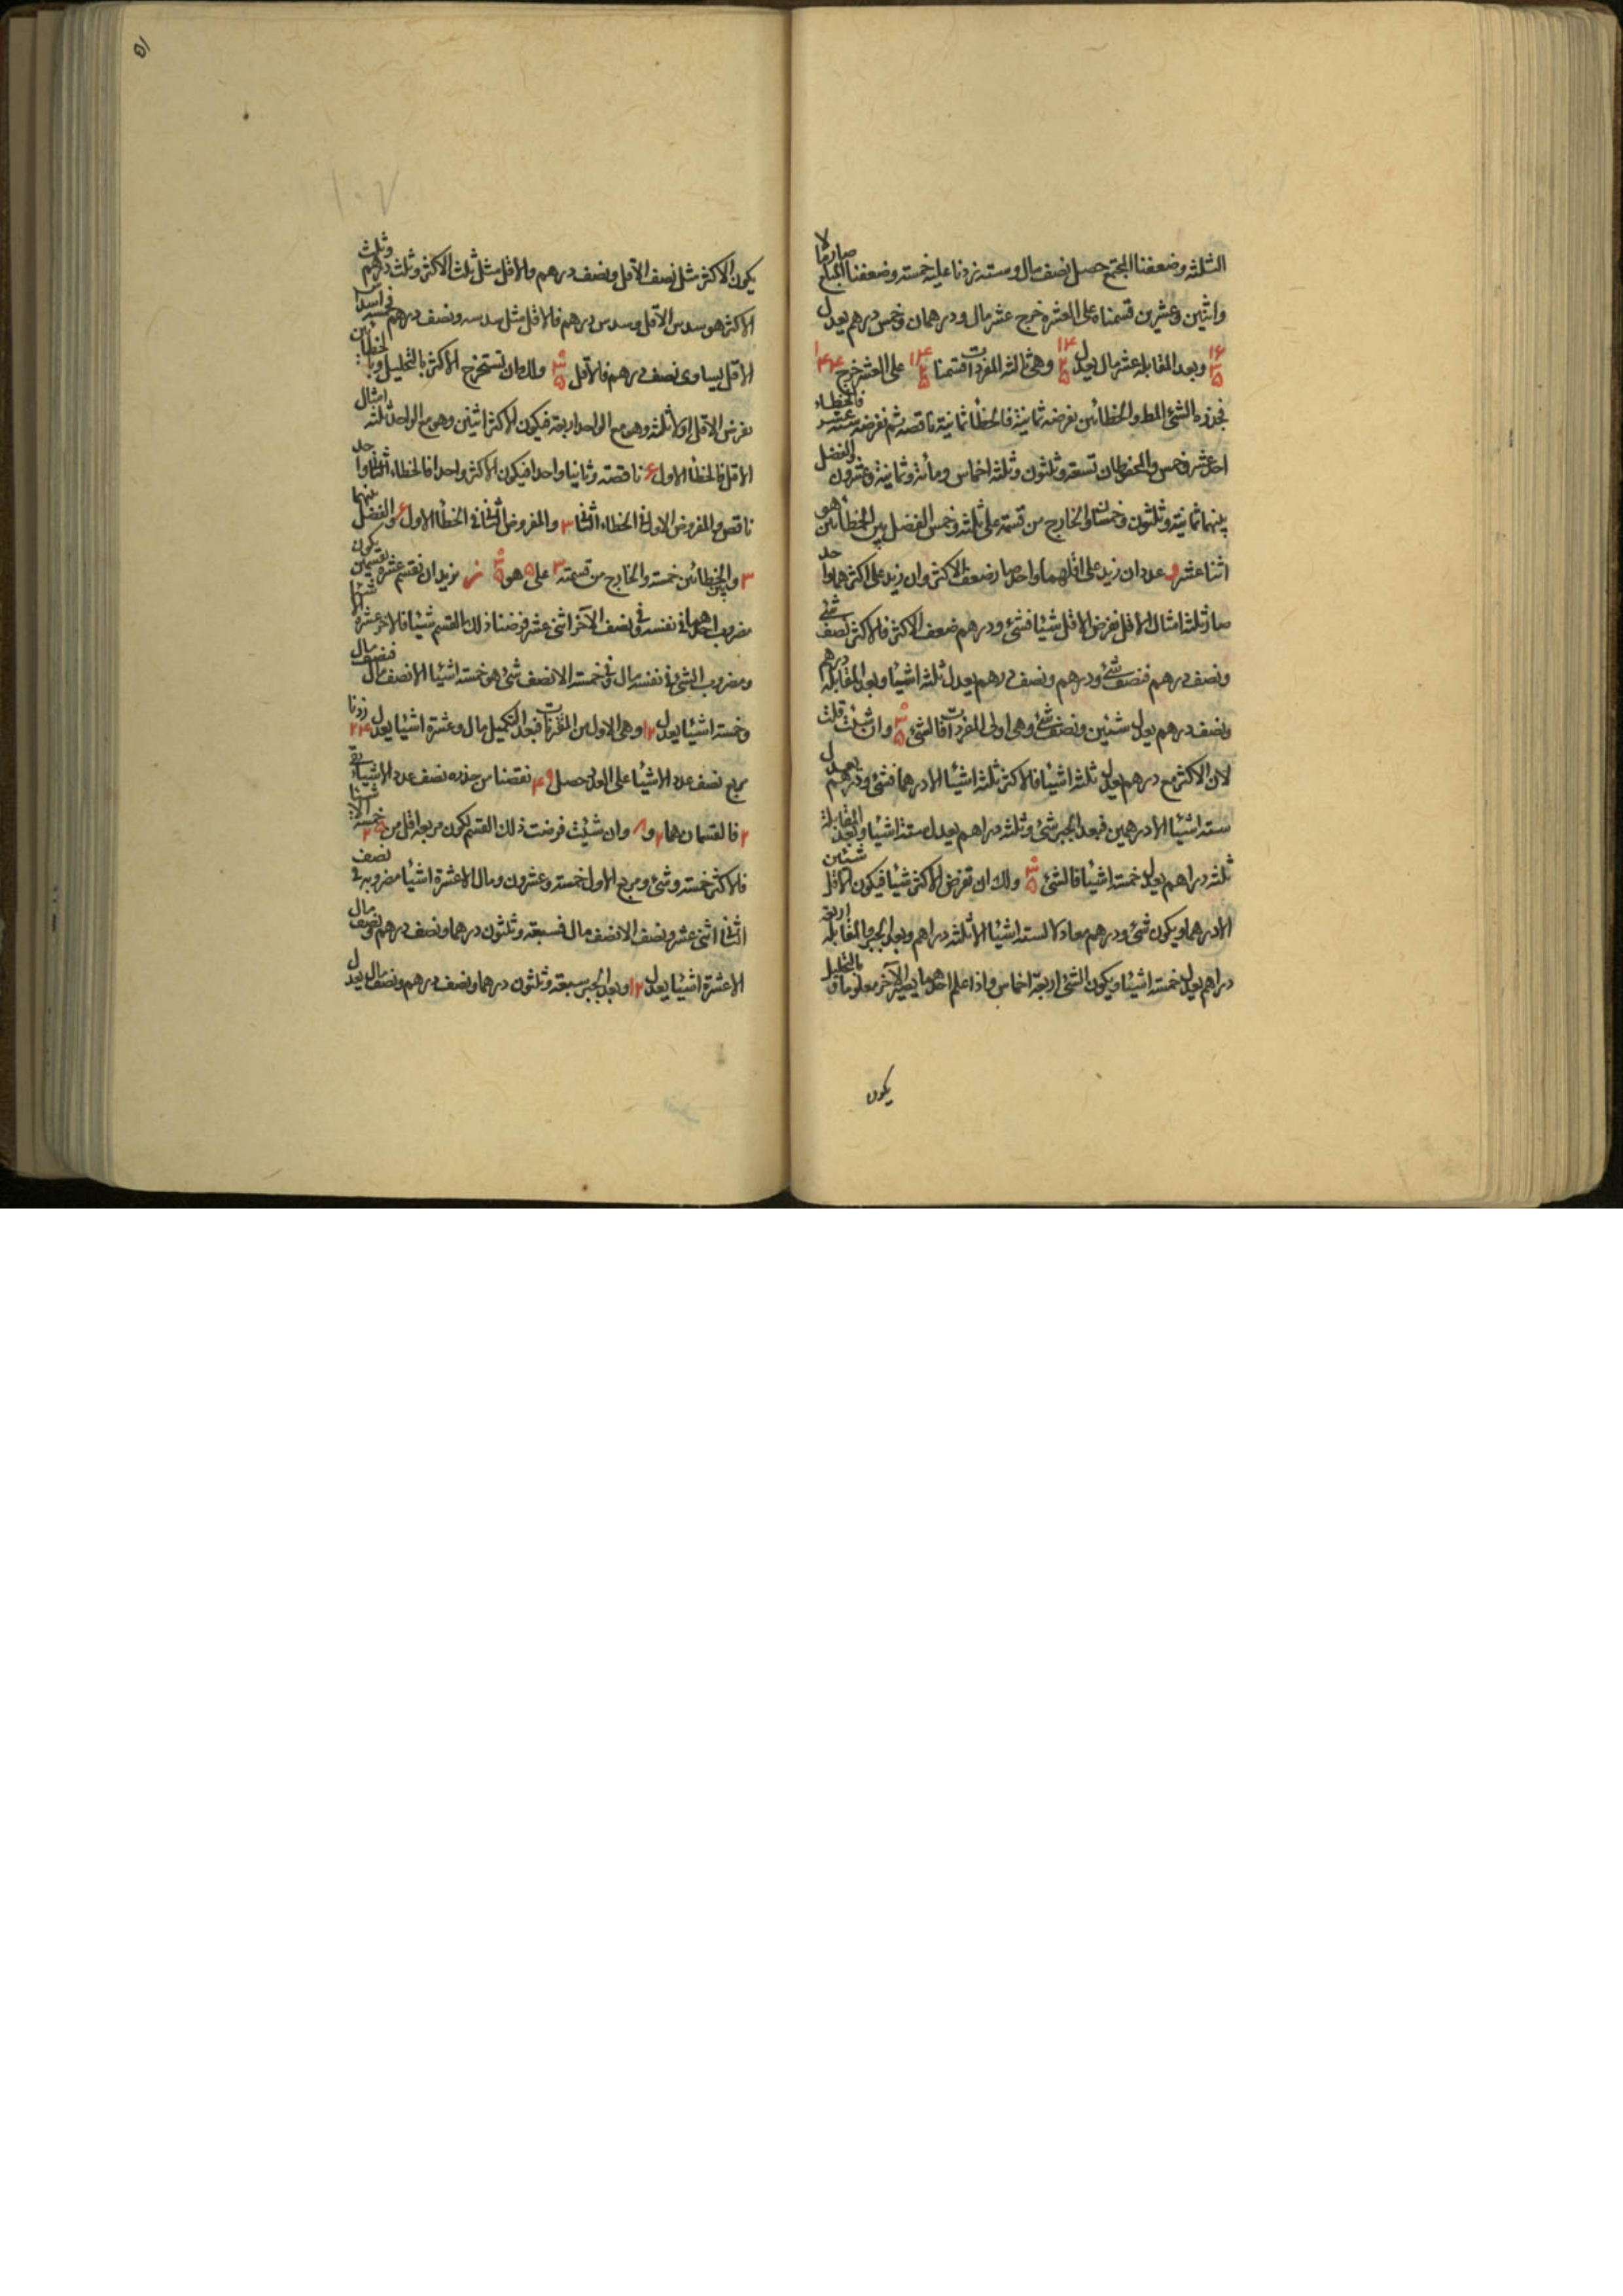 الثلثه وضعفنا المجتمع حصل نصف مال وستة زدنا عليه خمسة وضعفنا المبلغ صار مالا
واثنين وعشرين قسمناه على العشرة خرج عشر مال ودرهمان وخمس درهم يعدل
وبعد المقابلة عشر مال يعدل ١٤ ٢ ٥ وهى ثالثة المفردات قسمنا ١٤ ٢ ٥ على العشر خرج ١٤٤
فجذره الشئ المط وبالخطائين نفرضه ثمانية فالخطأ ثمانية ناقصة ثم نفرضه فالخطاء
احد عشر وخمس والمحفوظان تسعة وثلثون وثلثة اخماس ومائة وثمانية وعشرون والفضل
بينهما ثمانية وثلثون وخمسان والخارج من قسمته على ثلثة وخمس الفضل بين الخطائين هو
اثنا عشر و عددان زيد على اقلهما واحد صار ضعف الاكثر وان زيد على اكثرهما واحد
صار ثلثة امثال الاقل نفرض الاقل شيئا فشئ ودرهم ضعف الاكثر فالاكثر نصف شئ
ونصف درهم فنصف شئ ودرهم ونصف درهم يعدل ثلثة اشياء وبعد المقابلة درهم
ونصف درهم يعدل شيئين ونصف شئ وهى اولى المفردات فالشئ ٣ ٥ وان شئت قلت
لان الاكثر مع درهم يعدل ثلثة اشياء فالاكثر ثلثة اشياء الا درهما فشئ ودرهم يعدل
ستة اشياء الا درهمين فبعد الجبر شئ وثلثة دراهم يعدل ستة اشياء وبعد المقابلة
ثلثة دراهم يعدل خمسة اشياء فالشئ ٣ ٥ ولك ان تفرض الاكثر شيئا فيكون الاقل شيئين
الا درهما ويكون شئ ودرهم معادلا لستة اشياء الا ثلثة دراهم وبعد الجبر والمقابلة اربعة
دراهم يعدل خمسة اشياء ويكون الشئ اربعة اخماس واذا علم احدهما يصير الآخر معلوما وبالتحليل
يكون
٥١
١٠٧
يكون الاكثر مثل نصف الاقل ونصف درهم والاقل مثل ثلث الاكثر وثلث درهم وثلث
الاكثر هو سدس الاقل وسدس درهم فالاقل مثل سدسه ونصف درهم فخمسة اسداس
الاقل يساوى نصف درهم فالاقل ٣ ٥ ولك ان تستخرج الاكثر بالتحليل وبالخطائين
نفرض الاقل اولا ثلثة وهو مع الواحد اربعة فيكون الاكثر اثنين وهو مع الواحد ثلثة امثال
الاقل فالخطأ الاول ٦ ناقصة وثانيا واحدا فيكون الاكثر واحدا فالخطاء الثانى واحد
ناقص والمفروض الاول فى الخطاء الثانى ٣ والمفروض الثانى فى الخطأ الاول ٦ والفضل بينهما
٣ وبين الخطائين خمسة والخارج من قسمة ٣ على ٥ هو ٣ ٥ ز نريد ان نقسم عشرة بقسمين يكون
مضروب احدهما فى نفسه وفى نصف الآخر اثنى عشر فرضنا ذلك القسم شيئا فالآخر عشرة الا شيئا
ومضروب الشئ فى نفسه مال وفى خمسة الا نصف شئ هو خمسة اشياء الا نصف مال فنصف مال
وخمسة اشياء يعدل ١٢ وهى الاولى من المقترنات فبعد التكميل مال وعشرة اشياء يعدل ٢٤ زدنا
مربع نصف عدد الاشياء على العدد حصل ٤٩ نقصنا من جذره نصف عدد الاشياء بقى
٢ فالقسمان هما ٢ و ٨ وان شئت فرضت ذلك القسم لكون مربعه اقل من ٢٥ خمسة الا شيئا
فالاكثر خمسة وشئ ومربع الاول خمسة وعشرون ومال الا عشرة اشياء مضروبه فى نصف
الثانى اثنى عشر ونصف الا نصف مال فسبعة وثلثون درهما ونصف درهم ونصف مال
الا عشرة اشياء يعدل ١٢ وبعد الجبر سبعة وثلثون درهما ونصف درهم ونصف مال يعدل